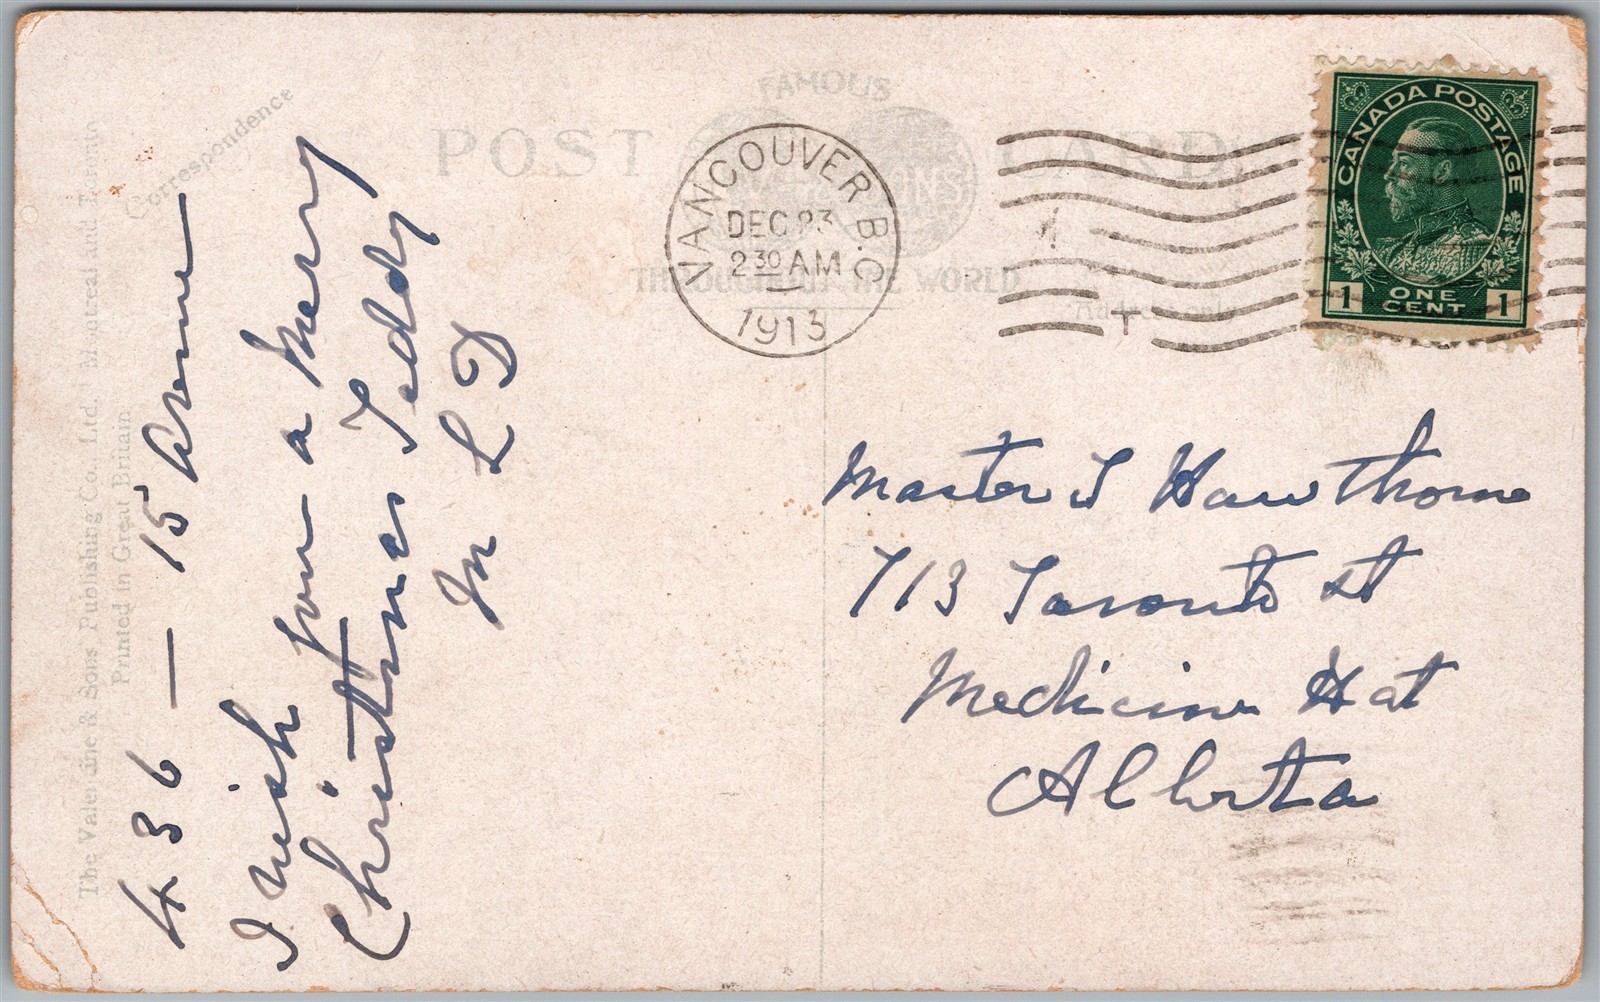 FAMOUS
POST CARD
THROUGHOUT THE WORLD
Correspondence
Address only
VANCOUVER B.C.
DEC 23
2 30 AM
1913
CANADA POSTAGE
1 ONE CENT 1
436 — 15 Avenue
I wish you a Merry
Christmas Teddy
M L D
Master T Hawthorne
713 Toronto St
Medicine Hat
Alberta
The Valentine & Sons' Publishing Co., Ltd. Montreal and Toronto
Printed in Great Britain